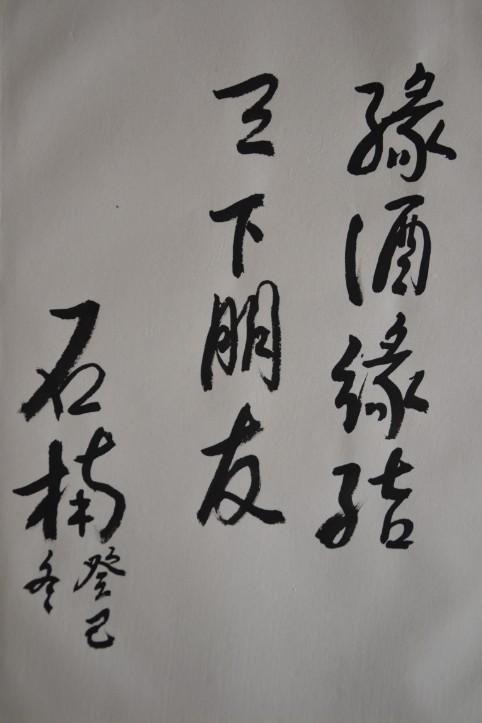 緣酒緣结
天下朋友
石楠
癸巳
冬